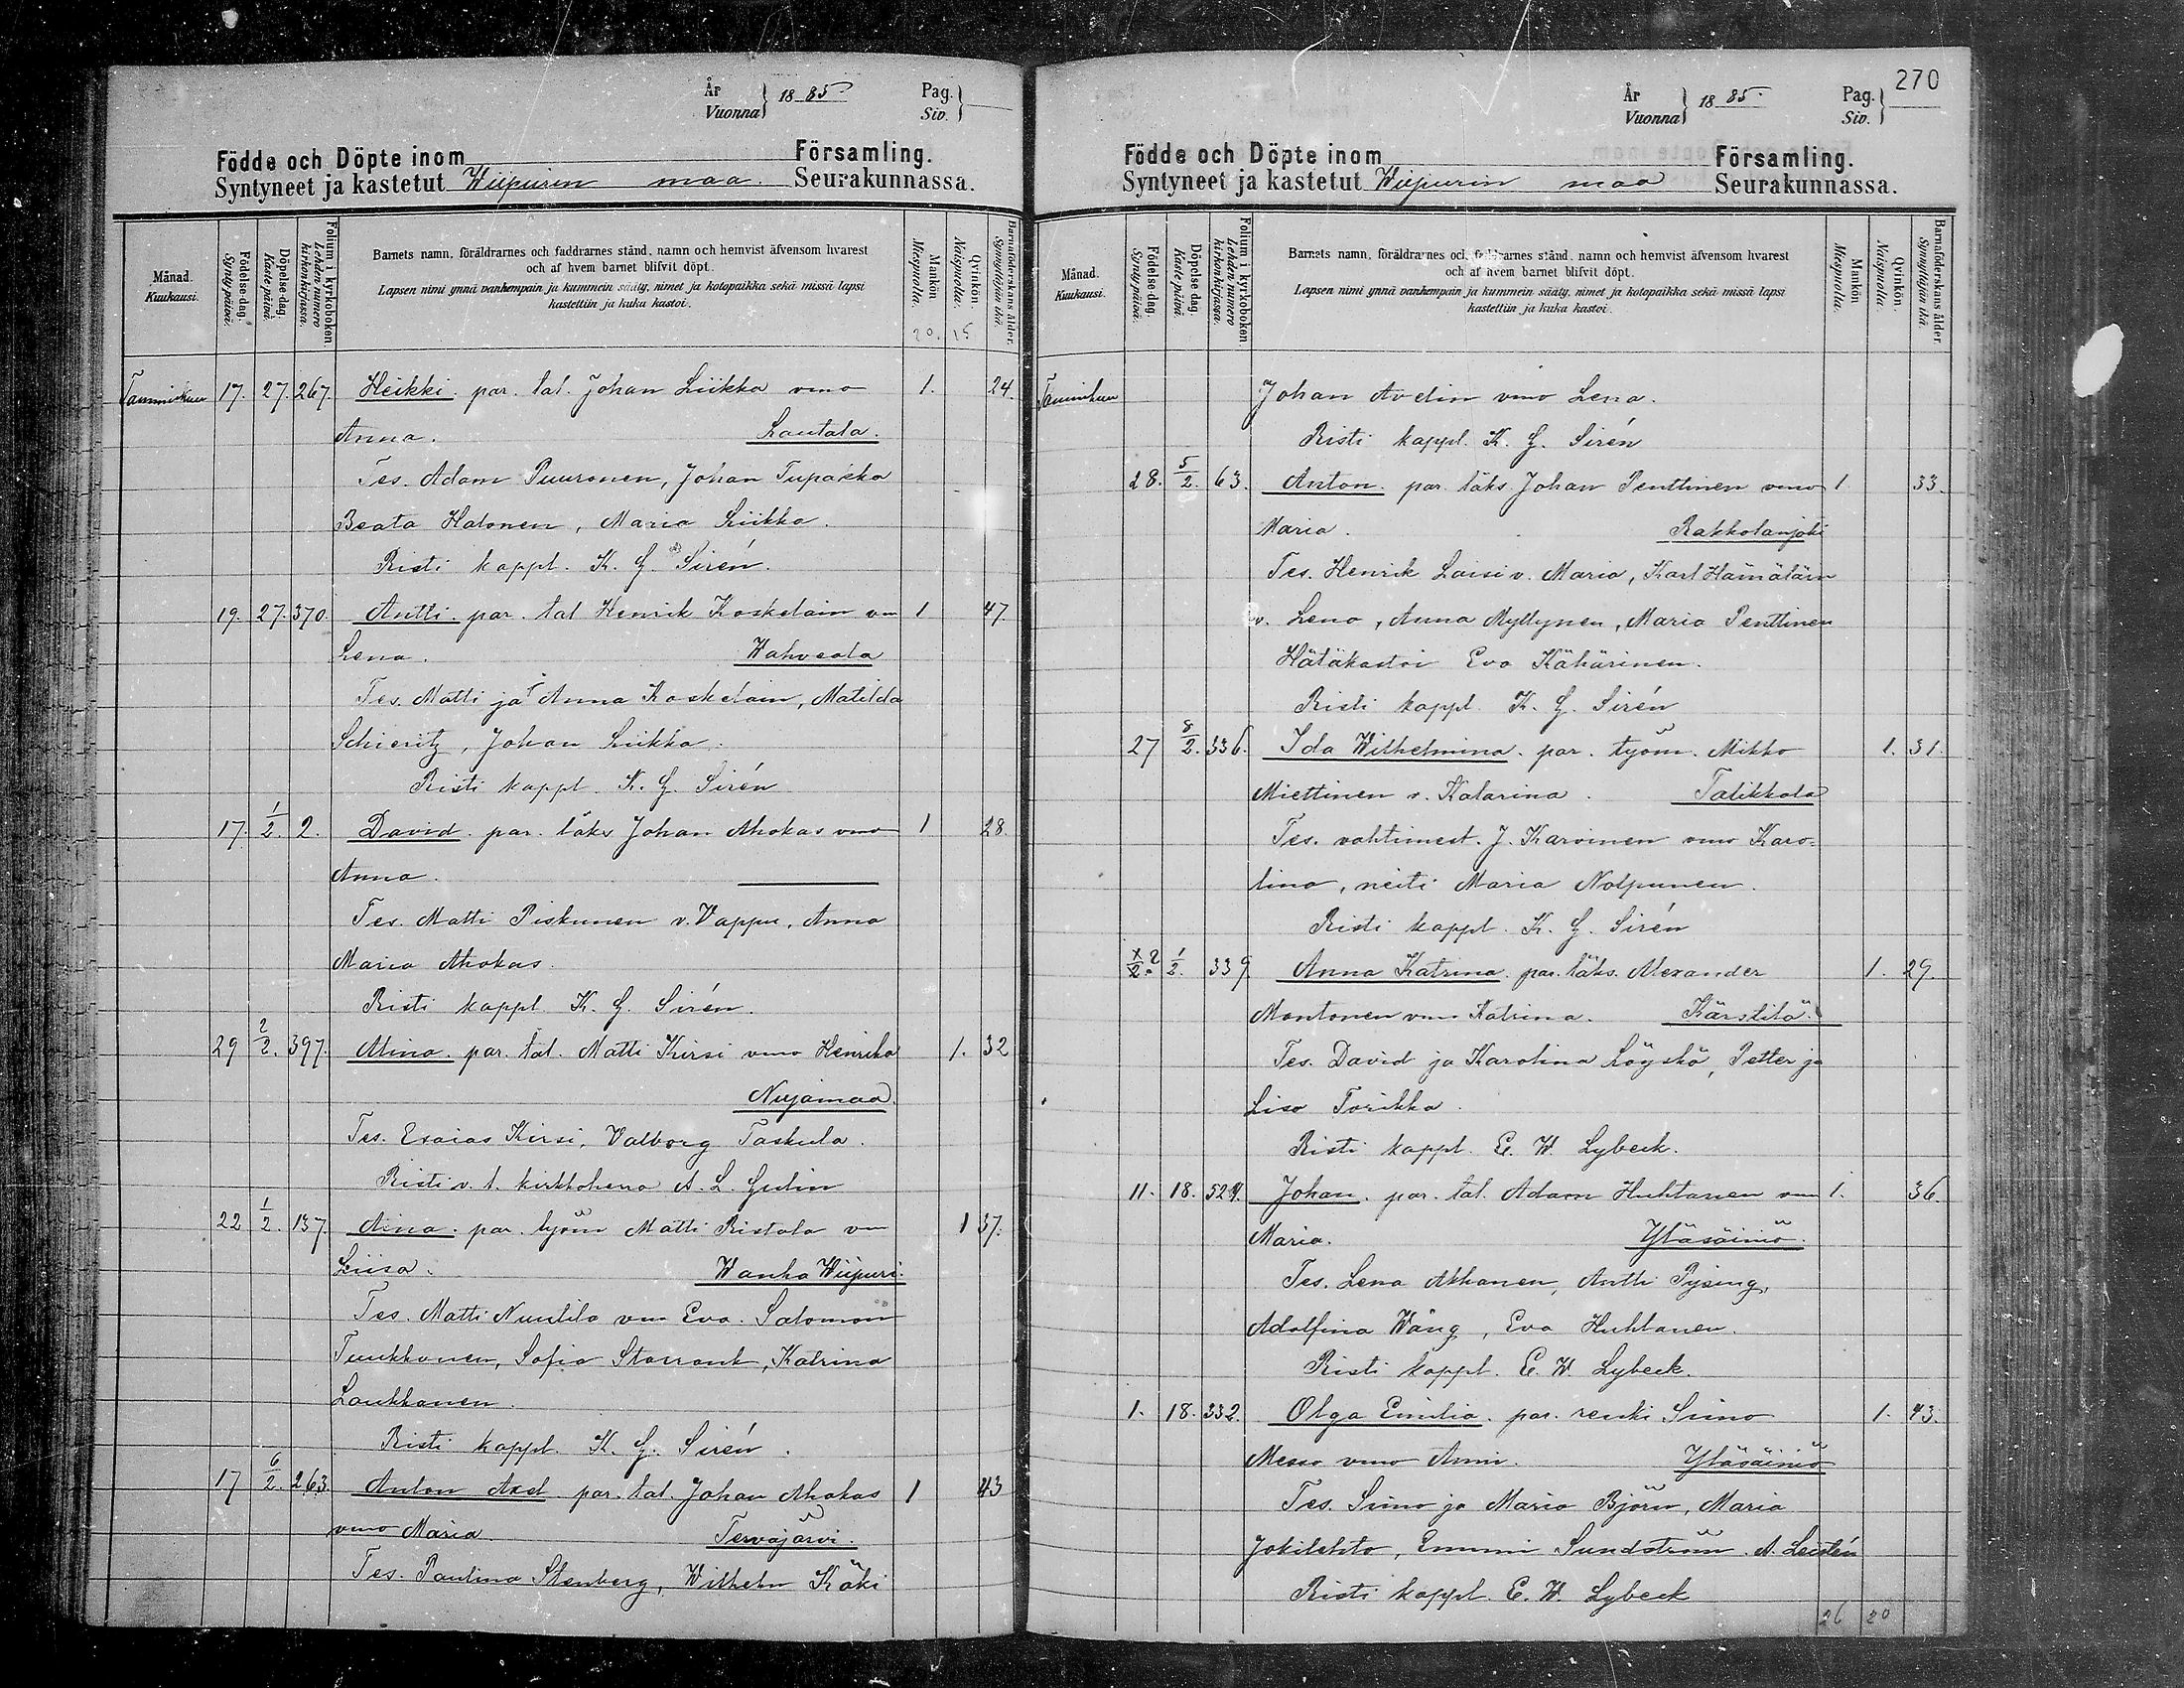 År
Vuonna } 1885.
Pag.
Siv. }
Födde och Döpte inom Församling.
Syntyneet ja kastetut Wiipurin maa. Seurakunnassa.
Månad.
Kuukausi.
Födelse-dag.
Synty päivä.
Döpelse-dag.
Kaste päivä.
Folium i kyrkoboken.
Lehden numero kirkonkirjassa.
Barnets namn, föräldrarnes och faddrarnes stånd, namn och hemvist äfvensom hvarest
och af hvem barnet blifvit döpt.
Lapsen nimi ynnä vanhempain ja kummein sääty, nimet ja kotopaikka sekä missä lapsi
kastettiin ja kuka kastoi.
Mankön.
Miespuolia.
Qvinkön.
Naispuolia.
Barnaföderskans ålder.
Synnyttäjän ikä.
20. 15
Tammikuu 17. 27. 267. Heikki. par. tal. Johan Liikka vmo 1. 24.
Anna. Lautala.
Tes. Adam Puuronen, Johan Tupakka
Beata Halonen, Maria Liikka.
Risti kappl. K. G. Sirén.
19. 27. 370. Antti. par. tal Henrik Koskelain vm 1 47.
Lena. Wahvaala
Tes. Matti ja Anna Koskelain, Matilda
Schieritz, Johan Liikka.
Risti kappl. K. G. Sirén
17. 1/2. 2. David. par. läks Johan Ahokas vmo 1 28.
Anna.
Tes. Matti Piskunen v. Vappu, Anna
Maria Ahokas.
Risti kappl. K. G. Sirén.
29 2/2. 397. Alina. par. tal. Matti Kirsi vmo Henrika 1. 32
Nuijamaa.
Tes. Esaias Kirsi, Valborg Taskula.
Risti v. t. kirkkoherra A. L. Gulin
22 1/2. 137. Aina. par. työm Matti Ristola vm 1 37.
Liisa. Wanha Wiipuri.
Tes. Matti Nuutila vm Eva. Salomon
Tuukkanen, Sofia Starrank, Katrina
Laukkanen.
Risti kappl. K. G. Sirén.
17 6/2. 263. Anton Axel par. tal. Johan Ahokas 1 43
vmo Maria. Tervajärvi.
Tes. Paulina Stenberg, Wilhelm Käki
270
År
Vuonna } 1885.
Pag.
Siv. }
Födde och Döpte inom Församling.
Syntyneet ja kastetut Wiipurin maa Seurakunnassa.
Månad.
Kuukausi.
Födelse-dag.
Synty päivä.
Döpelse dag.
Kaste päivä.
Folium i kyrkoboken.
Lehden numero kirkonkirjassa.
Barnets namn, föräldrarnes och faddrarnes stånd, namn och hemvist äfvensom hvarest
och af hvem barnet blifvit döpt.
Lapsen nimi ynnä vanhempain ja kummein sääty, nimet ja kotopaikka sekä missä lapsi
kastettiin ja kuka kastoi.
Mankön.
Miespuolia.
Qvinkön.
Naispuolia.
Barnaföderskans ålder.
Synnyttäjän ikä.
Tammikuu Johan Avelin vmo Lena.
Risti kappl. K. G. Sirén
28. 5/2. 63. Anton. par. läks. Johan Penttinen vmo 1 33.
Maria. Rakkolanjoki
Tes. Henrik Laisi v. Maria, Karl Hämäläin
v. Lena, Anna Myllynen, Maria Penttinen
Hätäkastoi Eva Kähärinen.
Risti kappl. K. G. Sirén
27 8/2. 336. Ida Wilhelmina. par. työm. Mikko 1. 31.
Miettinen v. Katarina. Talikkala
Tes. vahtimest. J. Karvinen vmo Karo-
lina, neiti Maria Nolpunen.
Risti kappl. K. G. Sirén
x/2.? 1/2. 339 Anna Katrina. par. läks. Alexander 1. 29.
Montonen vmo Katrina. Kärstilä.
Tes. David ja Karolina Löyskö, Petter ja
Lisa Torikka.
Risti kappl. E. W. Lybeck.
11. 18. 524. Johan. par. tal. Adam Huhtanen vm 1. 36.
Maria. Yläsäiniö.
Tes. Lena Ahkanen, Antti Pysing,
Adolfina Wäng, Eva Huhtanen.
Risti kappl. E. W. Lybeck.
1. 18. 332. Olga Emilia. par. renki Simo 1. 43.
Messo vmo Anni. Yläsäiniö
Tes. Simo ja Maria Björn, Maria
Jokilehto, Emmi Sundström. A. Leistén
Risti kappl. E. W. Lybeck
26 20